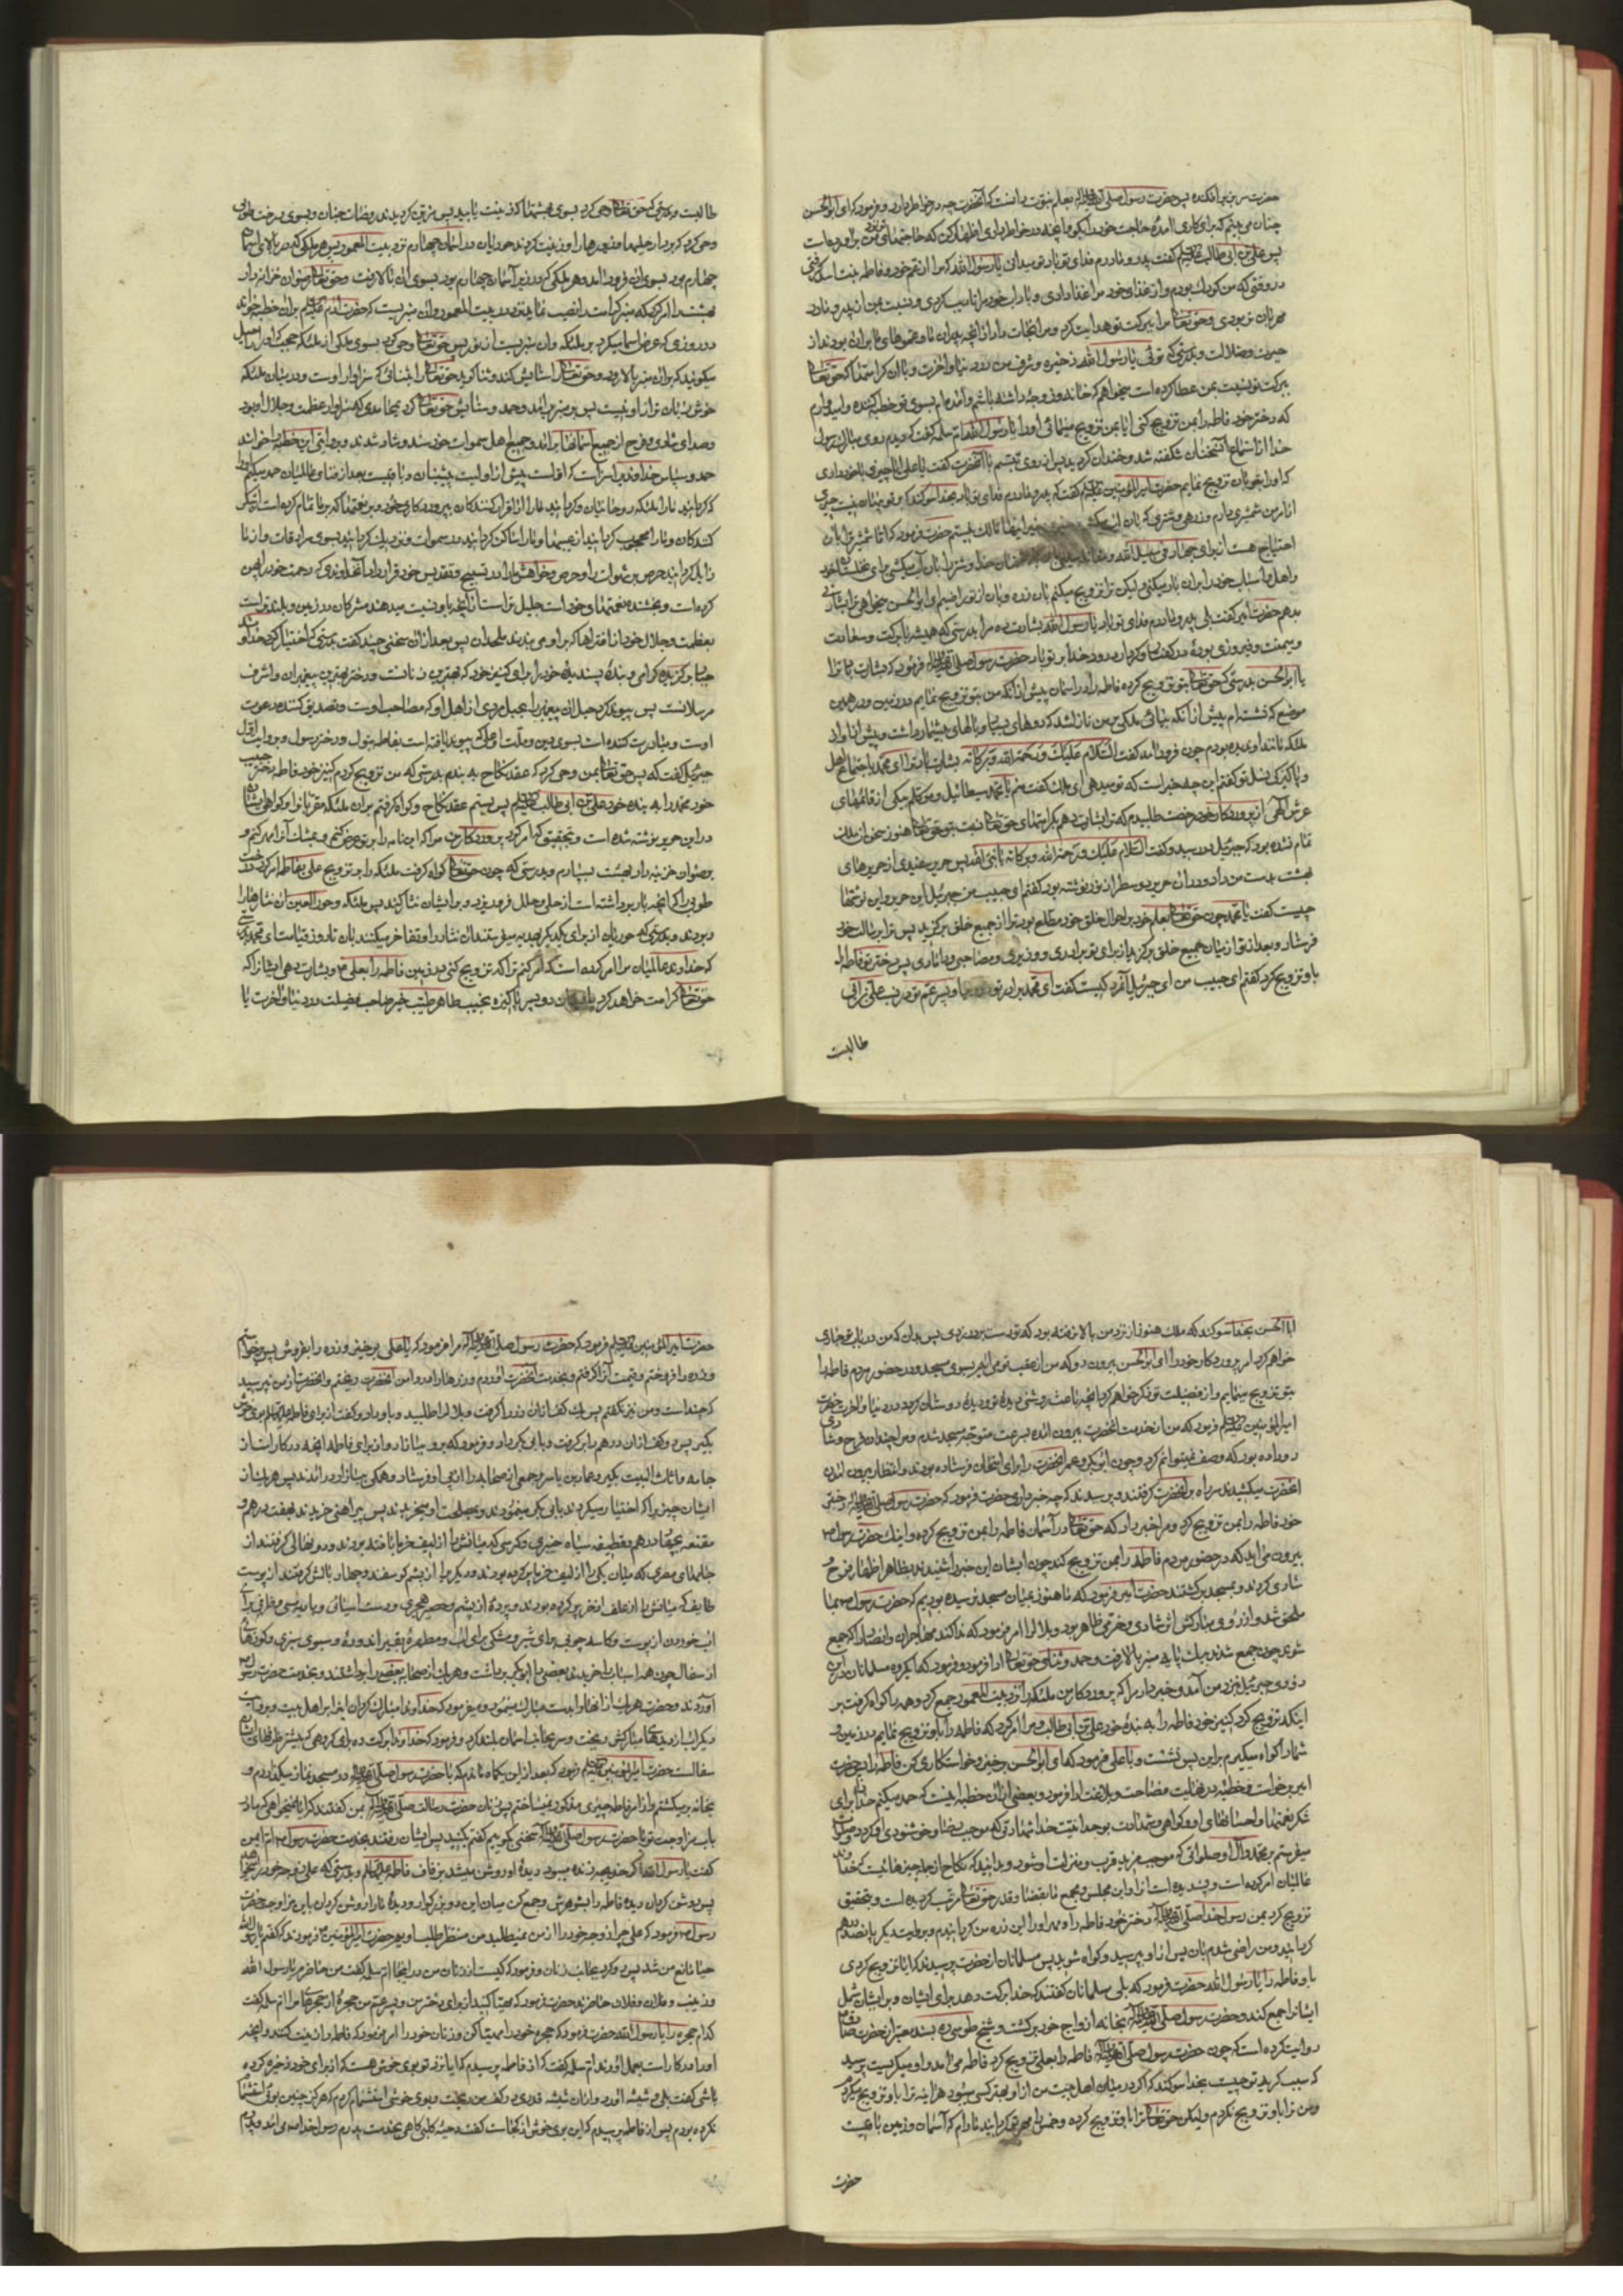 حضرت سر بزیر افکنده پس حضرت رسول صلی الله علیه و آله بعلم نبوت دانست که آنحضرت چه در خاطر دارد و فرمود که ای ابوالحسن
چنان می بینم که برای کاری آمدۀ حاجت خود را بگو و آنچه در خاطر داری اظهار کن که حاجتهای تو نزد من برآورده است
پس علی بن ابی طالب علیه السلام گفت پدر و مادرم فدای تو باد تو میدانی یا رسول الله که مرا از عم خود و فاطمه بنت اسد گرفتی
در وقتی که من کودک بودم و از غذای خود مرا غذا دادی و بآداب خود مرا تادیب کردی و نسبت بمن از پدر و مادر
مهربان تر بودی و حق تعالی مرا ببرکت تو هدایت کرد و مرا نجات داد از آنچه پدران ما و عموهای ما بران بودند از
حیرت و ضلالت و بدرستی که توئی یا رسول الله ذخیره و شرف من در دنیا و آخرت و با آن کرامتها که حق تعالی
ببرکت تو نسبت بمن عطا کرده است میخواهم که خانه و زوجۀ داشته باشم و آمده‌ام بسوی تو خطبه کننده و امیدوارم
که دختر خود فاطمه را بمن تزویج کنی آیا بمن تزویج مینمائی او را یا رسول الله ام سلمه گفت که دیدم روی مبارک رسول
خدا از استماع آن سخنان شکفته شد و خندان گردید پس از روی تبسم با آنحضرت گفت یا علی آیا چیزی با خود داری
که او را بتو بآن تزویج نمایم حضرت امیرالمؤمنین علیه السلام گفت که پدر و مادرم فدای تو باد بخدا سوگند که بر تو پنهان نیست چیزی
از امر من شمشیری دارم و زرهی و شتری که بآن آب میکشم و بغیر اینها مالک نیستم حضرت فرمود که اما شمشیر ترا بآن
احتیاج هست از برای جهاد فی سبیل الله و دشمنان خدا و شتر را بآن آب میکشی برای نخلستان خود
و اهل و اسباب خود را بران بار میکنی ولیکن ترا تزویج میکنم بآن زره و بآن از تو راضیم ای ابوالحسن میخواهی ترا بشارتی
بدهم حضرت امیر گفت بلی پدر و مادرم فدای تو باد یا رسول الله بشارت ده مرا بدرستی که همیشه با برکت و سعادت
و میمنت و فیروزی بودۀ در گفتار و کردار درود خدا بر تو باد حضرت رسول صلی الله علیه و آله فرمود که بشارت باد ترا
یا ابوالحسن بدرستی که حق تعالی بتو تزویج کرده فاطمه را در آسمان پیش از آنکه من بتو تزویج نمایم در زمین و در همین
موضع که نشسته‌ام پیش از آنکه بیائی ملکی بر من نازل شد که روهای بسیار و بالهای بیشمار داشت و پیش از او از
ملکه مانند او ندیده بودم چون فرود آمد گفت السلام علیک و رحمة الله و برکاته بشارت باد ترا ای محمد باجتماع اهل
و پاکیزگی نسل تو گفتم این چه خبر است که تو میدهی ای ملک گفت منم یا محمد سبطائیل و موکلم بیکی از قائمهای
عرش الهی از پروردگار خود رخصت طلبیدم که ترا بشارت دهم بکرامتهای حق تعالی نسبت بتو حق تعالی هنوز سخن او ملک
تمام نشده بود که جبرئیل در رسید و گفت السلام علیک و رحمة الله و برکاته یا نبی الله پس حریر سفیدی از حریرهای
بهشت بدست من داد و در آن حریر دو سطر از نور نوشته بود گفتم ای حبیب من جبرئیل این حریر و این نوشتها
چیست گفت یا محمد چون حق تعالی بعلم خود بر احوال خلق خود مطلع بود ترا از جمیع خلق برگزید پس ترا برسالت خود
فرستاد و بعد از تو از میان جمیع خلق برگزید از برای تو برادری و وزیری و مصاحبی و دامادی پس دختر تو فاطمه را
باو تزویج کرد گفتم ای حبیب من ای جبرئیل آنمرد کیست گفت ای محمد برادر تو و پسر عم تو در نسب علی بن ابی
طالبست
طالبست و بدرستی که حق تعالی وحی کرد بسوی بهشتها که زینت یابید پس مزین گردیدند روضات جنان و بسوی درخت طوبی
وحی کرد که بردار حلیها و زیورها را و زینت کردند حوریان در آسمان چهارم نزد بیت المعمور پس هر ملکی که در بالای آسمان
چهارم بود بسوی آن فرود آمد و هر ملکی که در زیر آسمان چهارم بود بسوی آن بالا رفت و حق تعالی رضوان خزانه دار
بهشت را امر کرد که منبر کرامت را نصب نماید نزد در بیت المعمور و آن منبریست که حضرت آدم علیه السلام بران خطبه خواند
در روزی که عرض اسما میکرد بر ملئکه و آن منبریست از نور پس حق تعالی وحی کرد بسوی ملکی از ملئکه حجب که او را راحیل
میگویند که بران منبر بالا رود و حق تعالی را ستایش کند و ثنا گوید حق تعالی را بثنائی که سزاوار اوست و در میان ملئکه
خوش زبان تر از او نیست پس بر منبر برآمد و حمد و ستایش حق تعالی کرد بمحامدی که سزاوار عظمت و جلال او بود
و صدای شادی و فرح از جمیع آسمانها برآمد و جمیع اهل سموات خورسند و شاد شدند و بروایتی این خطبه را خواند
حمد و سپاس خداوندیرا سزاست که اولست پیش از اولیت پیشینیان و باقیست بعد از فنای عالمیان حمد میکنیم او را
که گردانید ما را ملئکه روحانیان و گردانید ما را اقرار کنندگان بپروردگاری خود و بر نعمتها که بر ما تمام کرده است شکر
کنندگان و ما را محجوب گردانید از عیبها و ما را ساکن گردانید در سموات و نزدیک گردانید بسوی سرادقات و از ما
زایل گردانید حرص بر شهوات را و حرص و خواهش ما را در تسبیح و تقدیس خود قرار داد آنخداوندی که رحمت خود را پهن
کرده است و بخشنده نعمتهای خود است جلیل تر است از آنچه باو نسبت میدهند مشرکان در زمین و بلند تر است
بعظمت و جلال خود از افتراها که بر او می بندند ملحدان پس بعد از آن سخنی چند گفت بدرستی که اختیار کرد خداوند
جبار برگزیده گرامی و بندۀ پسندیده خود را برای کنیز خود که بهترین زنانست و دختر بهترین پیغمبران و اشرف
مرسلانست پس پیوند کرد حبل آن پیغمبر را بحبل مردی از اهل او که مصاحب اوست و تصدیق کننده دعوت
اوست و مبادرت کننده است بسوی دین و ملت او علی که پیوند یافته است بفاطمه بتول و دختر رسول و بروایت اول
جبرئیل گفت که پس حق تعالی بمن وحی کرد که عقد نکاح به بندم بدرستی که من تزویج کردم کنیز خود فاطمه دختر حبیب
خود محمد را به بنده خود علی بن ابی طالب علیه السلام پس بستم عقد نکاح و گواه گرفتم بران ملئکه مقربانرا و گواهی ایشان
در این حریر نوشته شده است و بتحقیق که امر کرد پروردگار من مرا که این نامه را بر تو عرض کنم و بمشک آنرا مهر کنم و
برضوان خزینه دار بهشت بسپارم و بدرستی که چون حق تعالی گواه گرفت ملئکه را بر تزویج علی بفاطمه امر کرد درخت
طوبی را که آنچه بار برداشته است از حلی و حلل فرو ریزد و بر ایشان نثار کند پس ملئکه و حور العین آن نثارها را
ربودند و بدرستی که حوریان از برای یکدیگر بهدیه میفرستند آن نثار را و تفاخر میکنند بآن تا روز قیامت ای محمد بدرستی
که خداوند عالمیان مرا امر کرده است که امر کنم ترا که تزویج کنی در زمین فاطمه را بعلی و بشارت دهی ایشانرا که
حق تعالی کرامت خواهد کرد بایشان دو پسر پاکیزه نجیب طاهر طیب خیر صاحب فضیلت در دنیا و آخرت یا
ابا الحسن بخدا سوگند که ملک هنوز از نزد من بالا نرفته بود که تو دست بر در زدی پس بدان که من در باب تو جاری
خواهم کرد امر پروردگار خود را ای ابوالحسن بیرون رو که من از عقب تو می آیم بسوی مسجد و در حضور مردم فاطمه را
بتو تزویج مینمایم و از فضیلت تو ذکر خواهم کرد آنچه باعث روشنی دیدۀ تو و دیدۀ دوستان تو گردد در دنیا و آخرت حضرت
امیرالمؤمنین علیه السلام فرمود که من از خدمت آنحضرت بیرون آمده بسرعت متوجه مسجد شدم و مرا چندان فرح و شادی
رو داده بود که وصف نمیتوانم کرد و چون ابوبکر و عمر آنحضرت را برای امتحان فرستاده بودند و انتظار بیرون آمدن
آنحضرت میکشیدند سر راه بر آنحضرت گرفتند و پرسیدند که چه خبر داری حضرت فرمود که حضرت رسول صلی الله علیه و آله دختر
خود فاطمه را بمن تزویج کرد و مرا خبر داد که حق تعالی در آسمان فاطمه را بمن تزویج کرده و اینک حضرت رسول
بیرون می آید که در حضور مردم فاطمه را بمن تزویج کند چون ایشان این خبر را شنیدند بظاهر اظهار فرح و
شادی کردند و بمسجد برگشتند حضرت امیر فرمود که ما هنوز بمیان مسجد نرسیده بودیم که حضرت رسول بما
ملحق شد و از روی مبارکش اثر شادی و خرمی ظاهر بود و بلال را امر فرمود که ندا کند مهاجران و انصار را که جمع
شوند چون جمع شدند بیک پایه منبر بالا رفت و حمد و ثنای حق تعالی ادا فرمود و فرمود که ای گروه مسلمانان در این
زودی جبرئیل نزد من آمد و خبر داد مرا که پروردگار من ملئکه را نزد بیت المعمور جمع کرد و همه را گواه گرفت بر
اینکه تزویج کرد کنیز خود فاطمه را به بندۀ خود علی بن ابی طالب و مرا امر کرد که فاطمه را باو تزویج نمایم در زمین و
شما را گواه میگیرم بر این پس نشست و با علی فرمود که ای ابوالحسن برخیز و خواستگاری کن فاطمه را پس حضرت
امیر برخواست و خطبۀ در نهایت فصاحت و بلاغت ادا فرمود و بعضی از آن خطبه اینست که حمد میکنم خدا را برای
شکر نعمتها و احسانهای او و گواهی و شهادت بوحدانیت خدا شهادتی که موجب رضا و خوشنودی او گردد و صلوات
میفرستم بر محمد و آل او صلواتی که موجب مزید قرب و منزلت او شود و بدانید که نکاح از جمله چیزهائیست که خداوند
عالمیان امر کرده است و پسندیده است آنرا و این مجلس و مجمع ما بقضا و قدر حق تعالی مرتب گردیده است و بتحقیق
تزویج کرد بمن رسول خدا صلی الله علیه و آله دختر خود فاطمه را و مهر او را این زره من گردانیدم و بروایت دیگر پانصد درهم
گردانید و من راضی شدم بآن پس از او بپرسید و گواه شوید پس مسلمانان از حضرت پرسیدند که آیا تو تزویج کردی
باو فاطمه را یا رسول الله حضرت فرمود که بلی مسلمانان گفتند که خدا برکت دهد برای ایشان و بر ایشان و شمل
ایشانرا جمع کند و حضرت رسول صلی الله علیه و آله بخانه ازواج خود برگشت و شیخ طوسی ره بسند معتبر از حضرت صادق
روایت کرده است که چون حضرت رسول صلی الله علیه و آله فاطمه را بعلی تزویج کرد فاطمه می آمد و او میگریست پرسید
که سبب گریه تو چیست بخدا سوگند که اگر در میان اهل بیت من از او بهتر کسی میبود هرآینه ترا باو تزویج میکردم
و من ترا باو تزویج نکردم ولیکن حق تعالی ترا باو تزویج کرده و خمس را مهر تو گردانید مادام که آسمان و زمین باقیست
حضرت
حضرت امیرالمؤمنین علیه السلام فرمود که حضرت رسول صلی الله علیه و آله مرا فرمود که یا علی برخیز و زره را بفروش پس برخواستم
و زره را فروختم و قیمت آنرا گرفتم و بخدمت آنحضرت آوردم و زرها را در دامن آنحضرت ریختم و آنحضرت از من نپرسید
که چند است و من نیز نگفتم پس یک کف از آن زر را گرفت و بلال را طلبید و باو داد و گفت از برای فاطمه علیها السلام بوی خوش
بگیر پس دو کف از آن درهم را برگرفت و بابی بکر داد و فرمود که برو ببازار و از برای فاطمه آنچه در کار است از
جامه و اثاث البیت بگیر و عمار بن یاسر و جمعی از صحابه را از پی او فرستاد و همگی ببازار در آمدند پس هر یک از
ایشان چیزیرا که اختیار میکردند بابی بکر مینمودند و بمصلحت او میخریدند پس پیراهنی خریدند بهفت درهم و
مقنعه بچهار درهم و قطیفه سیاه خیبری و کرسی که میانش را از لیف خرما بافته بودند و دو نهالی گرفتند از
جامهای مصری که میان یکی را از لیف خرما پر کرده بودند و دیگریرا از پشم گوسفند و چهار بالش گرفتند از پوست
طایف که میانش را از علف اذخر پر کرده بودند و پردۀ از پشم و حصیر هجری و دست آسیائی و بادیه مسی و ظرفی برای
آب خوردن از پوست و کاسه چوبی برای شیر و مشکی برای آب و مطهرۀ بقیر اندوده و سبوی سبزی و کوزهای
از سفال چون همه اسباب را خریدند بعضی را ابی بکر برداشت و هر یک از صحابه بعضی را برداشتند و بخدمت حضرت رسول
آوردند و حضرت هر یک از آنها را بدست مبارک میگرفت و میفرمود که خداوندا مبارک گردان اینرا بر اهل بیت و بروایت
دیگر آب از دیدهای مبارکش ریخت و سر بجانب آسمان بلند کرد و فرمود که خداوندا برکت ده برای گروهی که بیشتر ظرفهای ایشان
سفالست حضرت امیرالمؤمنین علیه السلام فرمود که بعد از این یکماه ماندم که با حضرت رسول صلی الله علیه و آله در مسجد نماز میگذاردم و
بخانه برمیگشتم و از امر فاطمه چیزی مذکور نمیساختم پس زنان حضرت رسالت صلی الله علیه و آله بمن گفتند که آیا نمیخواهی که ما در
باب مزاوجت تو با حضرت رسول صلی الله علیه و آله سخنی گوییم گفتم بگویید پس ایشان رفتند بخدمت حضرت رسول ام ایمن
گفت یا رسول الله اگر خدیجه زنده میبود دیدۀ او روشن میشد بزفاف فاطمه علیها السلام و بدرستی که علی زوجه خود را میخواهد
پس روشن گردان دیدۀ فاطمه را بشوهرش و جمع کن میان این دو بزرگوار و دیدۀ ما را روشن گردان باین مزاوجت حضرت
رسول فرمود که علی چرا زوجه خود را از من نمیطلبد و من منتظر طلب او بودم حضرت امیرالمؤمنین فرمود که گفتم یا رسول الله
حیا مانع من شد پس رو کرد بجانب زنان و فرمود که کیست از زنان من در اینجا ام سلمه گفت من حاضرم یا رسول الله
و زینب و فلان و فلان حاضرند حضرت فرمود که مهیا کنید از برای دختر من و پسر عم من حجرۀ از حجرهای مرا ام سلمه گفت
کدام حجره را یا رسول الله حضرت فرمود که حجره خود را مهیا کن و زنان خود را امر فرمود که فاطمه را زینت کنند و آنچه
او را در کار است بعمل آورند ام سلمه گفت که از فاطمه پرسیدم که آیا نزد تو بوی خوش هست که از برای خود ذخیره کرده
باشی گفت بلی و شیشه آورد و از آن شیشه قدری در کف من ریخت و بوی خوشی استشمام کردم که هرگز چنین بوئی استشمام
نکرده بودم پس از فاطمه پرسیدم که این بوی خوش از کجاست گفت دحیه کلبی گاهی بخدمت پدرم رسول خدا می آمد و پدرم